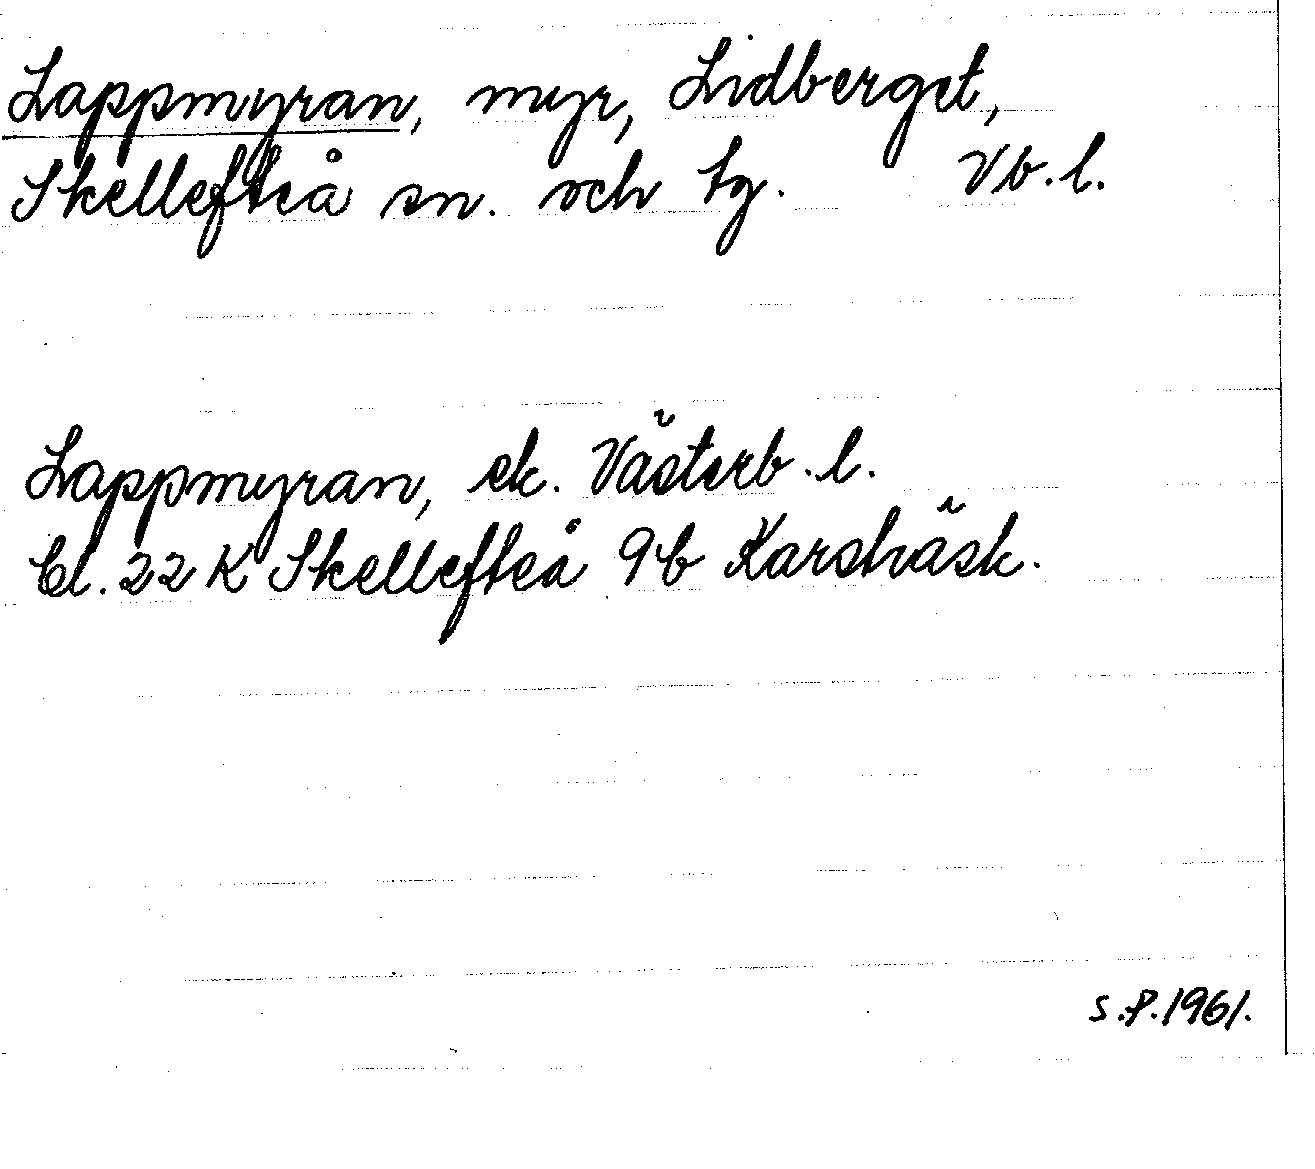 Lappmyran, myr, Lidberget,
Skellefteå sn. och tg. Vb.l.
Lappmyran, ek. Västerb.l.
bl. 22 K Skellefteå 9b Karsbäsk.
S.P.1961.